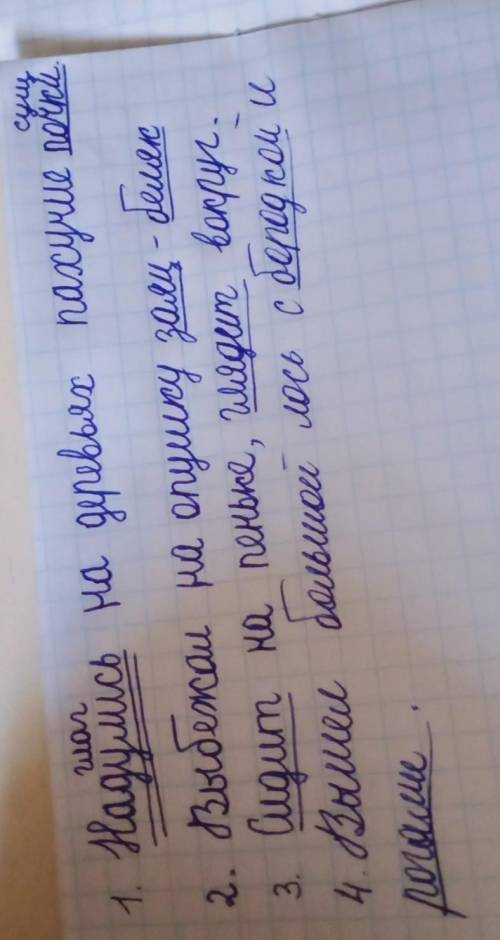 глаг сущ
1. Надулись на деревьях пахучие почки.
2. Выбежал на опушку заяц - беляк
3. Сидит на пеньке, глядит вокруг.
4. Вышел большой лось с бородкой и
рогами.